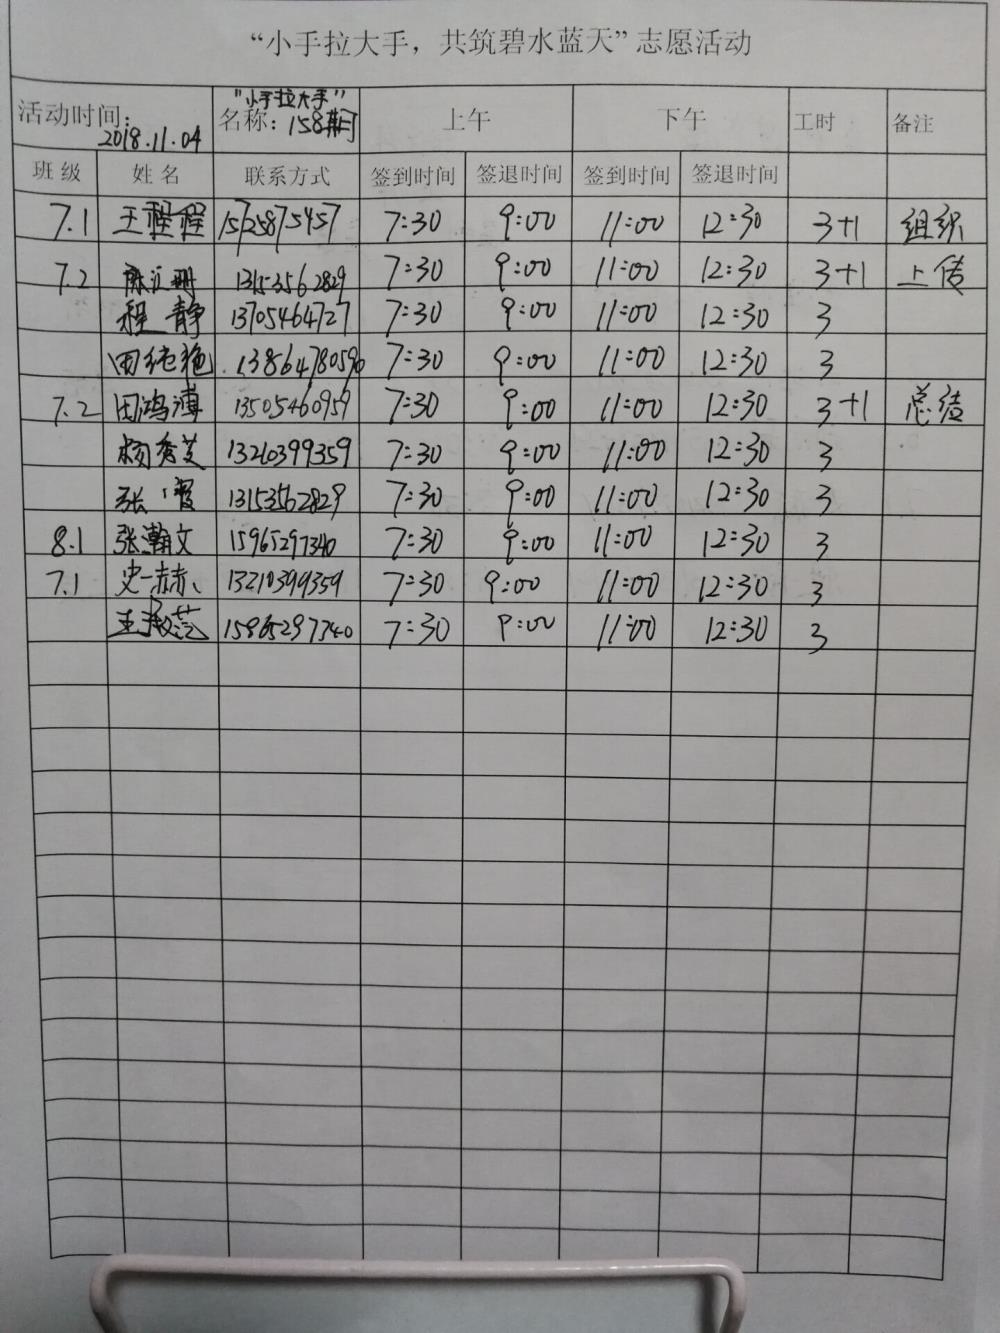 “小手拉大手，共筑碧水蓝天”志愿活动
活动时间： 2018.11.04 “小手拉大手” 名称：158 上午 下午 工时 备注
班级 姓名 联系方式 签到时间 签退时间 签到时间 签退时间
7.1 王程程 15725875457 7:30 9:00 11:00 12:30 3+1 组织
7.2 13153562829 7:30 9:00 11:00 12:30 3+1 上传
程静 13705464727 7:30 9:00 11:00 12:30 3
田纯艳 13864780590 7:30 9:00 11:00 12:30 3
7.2 田鸿溥 13505460959 7:30 9:00 11:00 12:30 3+1 总结
杨秀芝 13210399359 7:30 9:00 11:00 12:30 3
张霞 13153562829 7:30 9:00 11:00 12:30 3
8.1 张瀚文 15965297340 7:30 9:00 11:00 12:30 3
7.1 史一赫 13210399359 7:30 9:00 11:00 12:30 3
15965297340 7:30 9:00 11:00 12:30 3